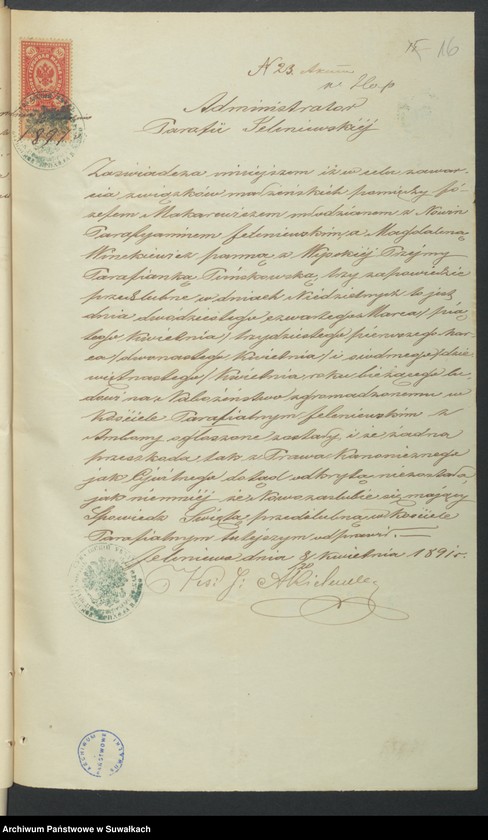 16
N 23.
1891
Administrator
Parafii Jeleniewskiéj
Zaświadcza niniejszem iż w celu zawar-
cia związków małżeńskich pomiędzy Jó-
zefem Makarewiczem młodzianem z Nowin
Parafyaninem Jeleniewskim, a Magdaleną
Wnukiewicz panną z Wysokiéj
Parafianką, trzy zapowiedzie
przedślubne w dniach Niedzielnych to jest
dnia dwudziestego czwartego Marca / pią-
tego Kwietnia /, trzydziestego pierwszego Mar-
ca / dwunastego Kwietnia / i siódmego / dzie-
więtnastego / Kwietnia roku bieżącego lu-
dowi na Nabożeństwo zgromadzonemu w
Kościele Parafialnym Jeleniewskim z
Ambony ogłoszone zostały i że żadna
przeszkoda tak z Prawa Kanonicznego
jak Cywilnego dotąd odkrytą niezostała,
jak niemniéj że Nowozaślubić się mający
Spowiedź Świętą przedślubną w Kościele
Parafialnym tutejszym odprawił. —
Jeleniewo dnia 8/20 Kwietnia 1891 r.
Ks: J:
ARCHIWUM PAŃSTWOWE SUWAŁKI
Archiwum Państwowe w Suwałkach